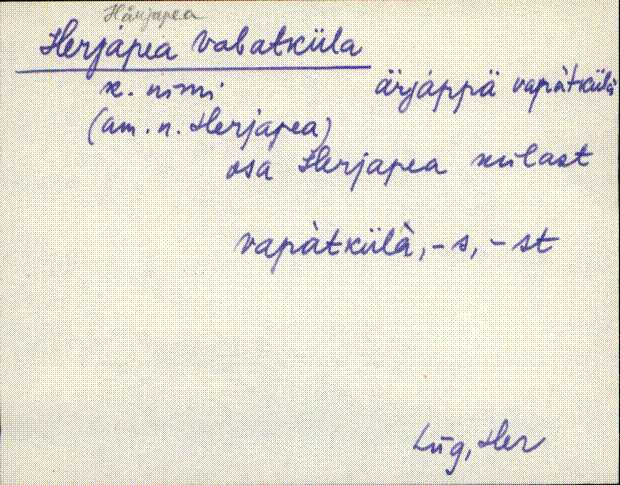 Härjapea
Herjapea Vabatküla
k. nimi ärjäppä vapàtkülà
(am. n. Herjapea)
osa Herjapea külast
vapàtkülà, -s, -st
Lüg, Her